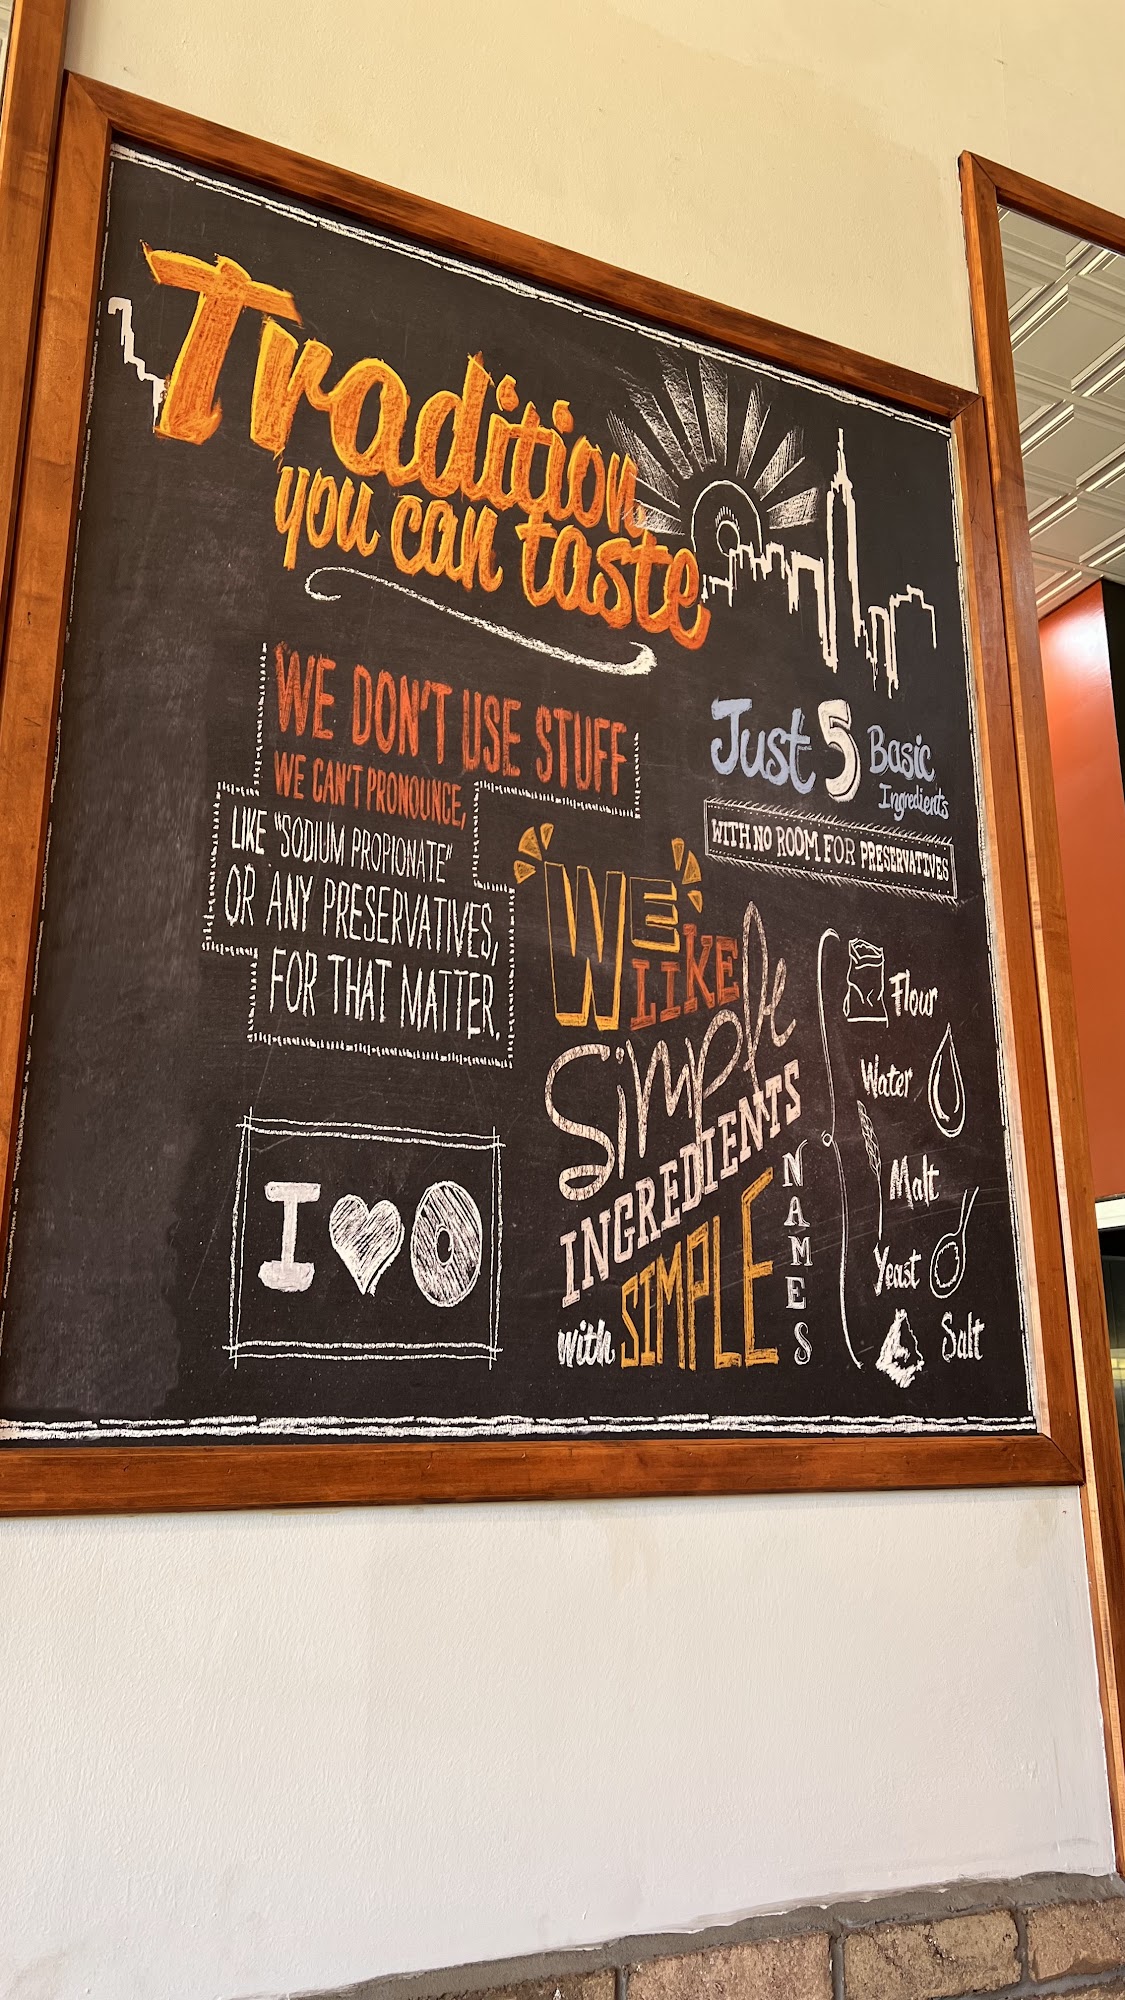 Tradition
you can taste
WE DON'T USE STUFF
WE CAN'T PRONOUNCE,
LIKE "SODIUM PROPIONATE"
OR ANY PRESERVATIVES,
FOR THAT MATTER.
I
Just 5 Basic
Ingredients
WITH NO ROOM FOR PRESERVATIVES
WE
LIKE
Simple
INGREDIENTS
with SIMPLE
NAMES
Flour
Water
Malt
Yeast
Salt